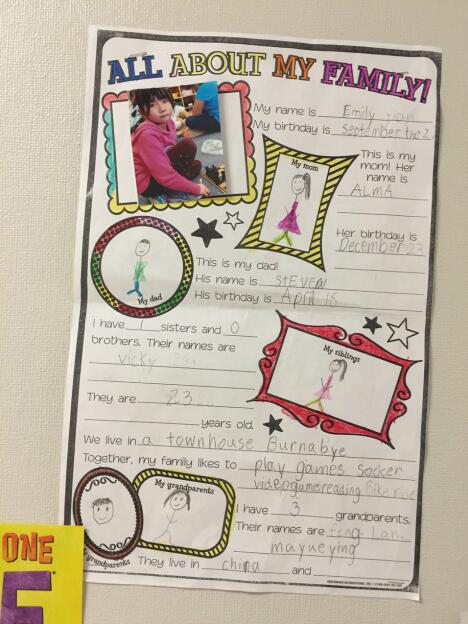 ALL ABOUT MY FAMILY!
My name is Emily
My birthday is September the 2
My mom
This is my
mom! Her
name is
ALMA
Her birthday is
December 23
My dad
This is my dad!
His name is StEVEN
His birthday is April 15
I have 1 sisters and 0
brothers. Their names are
vicky
My siblings
They are 23
years old.
We live in a townhouse Burnabye
Together, my family likes to play games soccer
videogames reading Bike ride
My grandparents
I have 3 grandparents.
Their names are feng Lan,
mayueying
grandparents
They live in china and
ONE
5